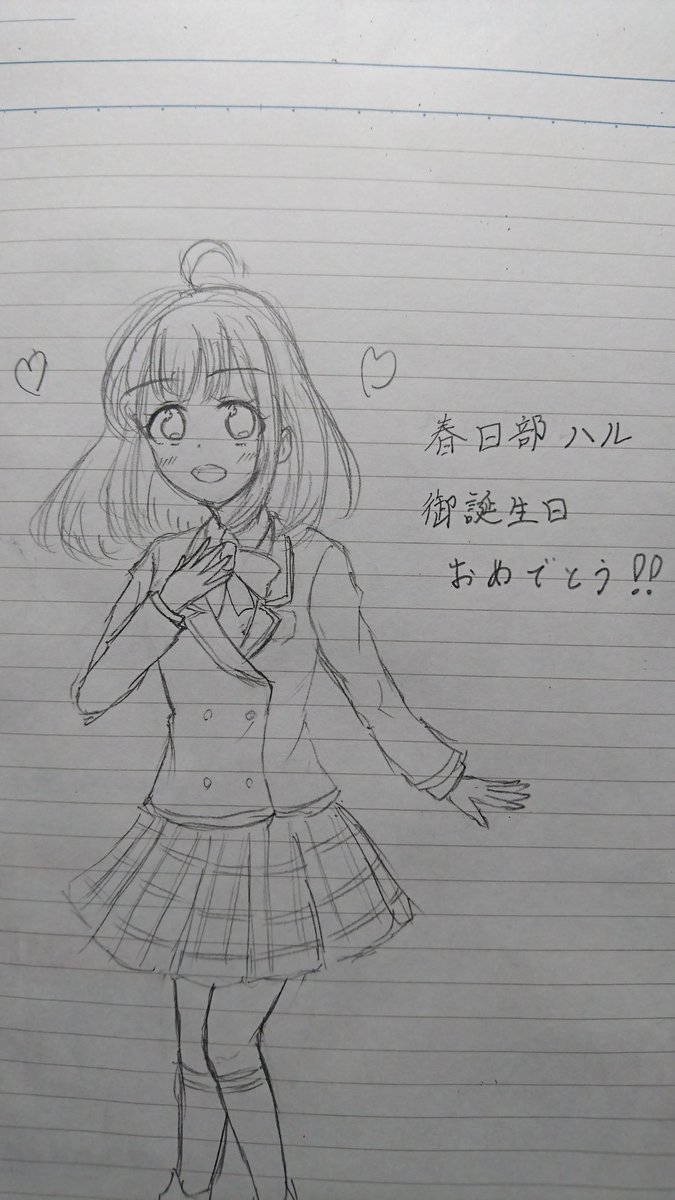 春日部ハル
御誕生日
おめでとう!!